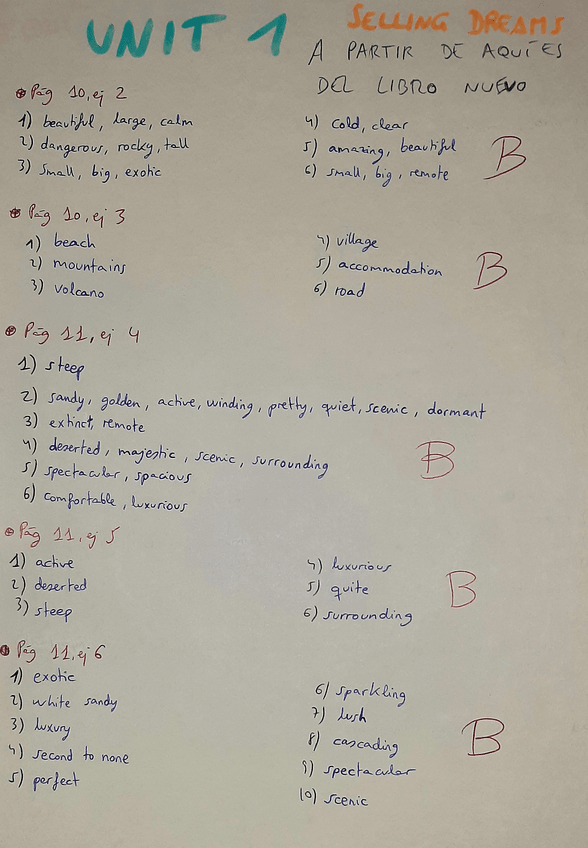 UNIT 1 SELLING DREAMS
A PARTIR DE AQUÍ ES
DEL LIBRO NUEVO
Pág 10, ej 2
1) beautiful, large, calm
2) dangerous, rocky, tall
3) small, big, exotic
4) cold, clear
5) amazing, beautiful
6) small, big, remote
B
Pág 10, ej 3
1) beach
2) mountains
3) volcano
4) village
5) accommodation
6) road
B
Pág 11, ej 4
1) steep
2) sandy, golden, active, winding, pretty, quiet, scenic, dormant
3) extinct, remote
4) deserted, majestic, scenic, surrounding
5) spectacular, spacious
6) comfortable, luxurious
B
Pág 11, ej 5
1) active
2) deserted
3) steep
4) luxurious
5) quite
6) surrounding
B
Pág 11, ej 6
1) exotic
2) white sandy
3) luxury
4) second to none
5) perfect
6) sparkling
7) lush
8) cascading
9) spectacular
10) scenic
B